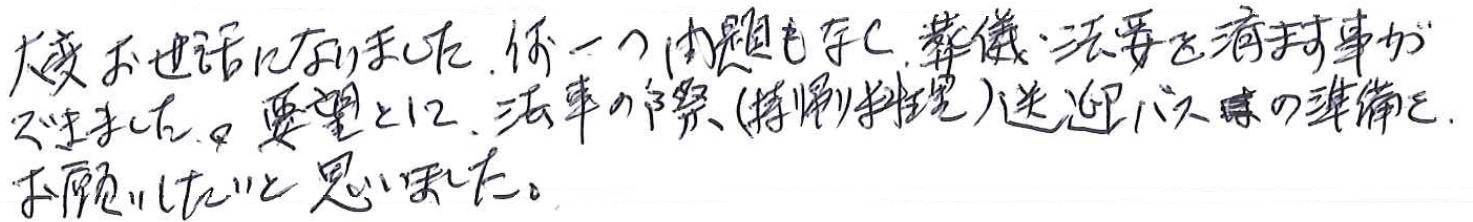 大変お世話になりました、何一つ問題もなく、葬儀・法要を済ます事が
できました。要望とに、法事の際、(持帰り料理)送迎バスの準備を、
お願いしたいと思いました。